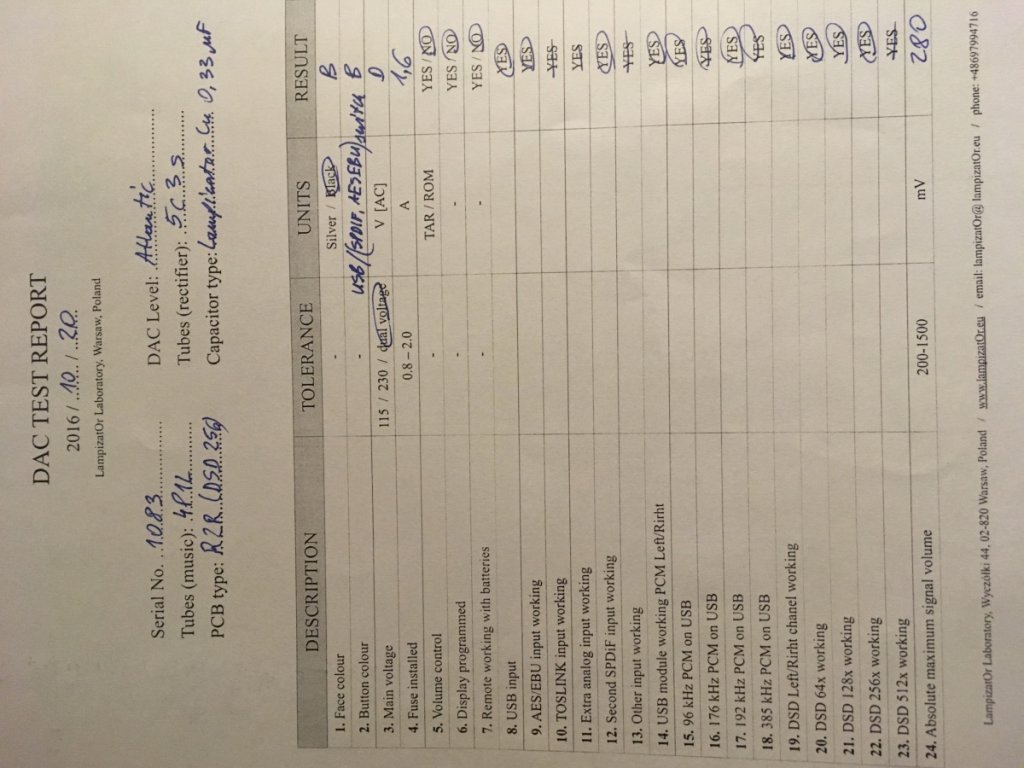 DAC TEST REPORT
2016 / 10 / 20
LampizatOr Laboratory, Warsaw, Poland
Serial No. 1083 DAC Level: Atlantic
Tubes (music): 4P1L Tubes (rectifier): 5C3S
PCB type: R2R (DSD 256) Capacitor type: Lampizator Cu 0,33 uF
DESCRIPTION TOLERANCE UNITS RESULT
1. Face colour - Silver / Black B
2. Button colour - USB/(SPDIF, AESEBU) switch B
3. Main voltage 115 / 230 / dual voltage V [AC] D
4. Fuse installed 0.8 – 2.0 A 1,6
5. Volume control - TAR / ROM YES / NO
6. Display programmed - - YES / NO
7. Remote working with batteries - - YES / NO
8. USB input YES
9. AES/EBU input working YES
10. TOSLINK input working YES
11. Extra analog input working YES
12. Second SPDiF input working YES
13. Other input working YES
14. USB module working PCM Left/Rirht YES
15. 96 kHz PCM on USB YES
16. 176 kHz PCM on USB YES
17. 192 kHz PCM on USB YES
18. 385 kHz PCM on USB YES
19. DSD Left/Rirht chanel working YES
20. DSD 64x working YES
21. DSD 128x working YES
22. DSD 256x working YES
23. DSD 512x working YES
24. Absolute maximum signal volume 200-1500 mV 280
LampizatOr Laboratory, Wyczółki 44, 02-820 Warsaw, Poland / www.lampizatOr.eu / email: lampizatOr@lampizatOr.eu / phone: +48697994716